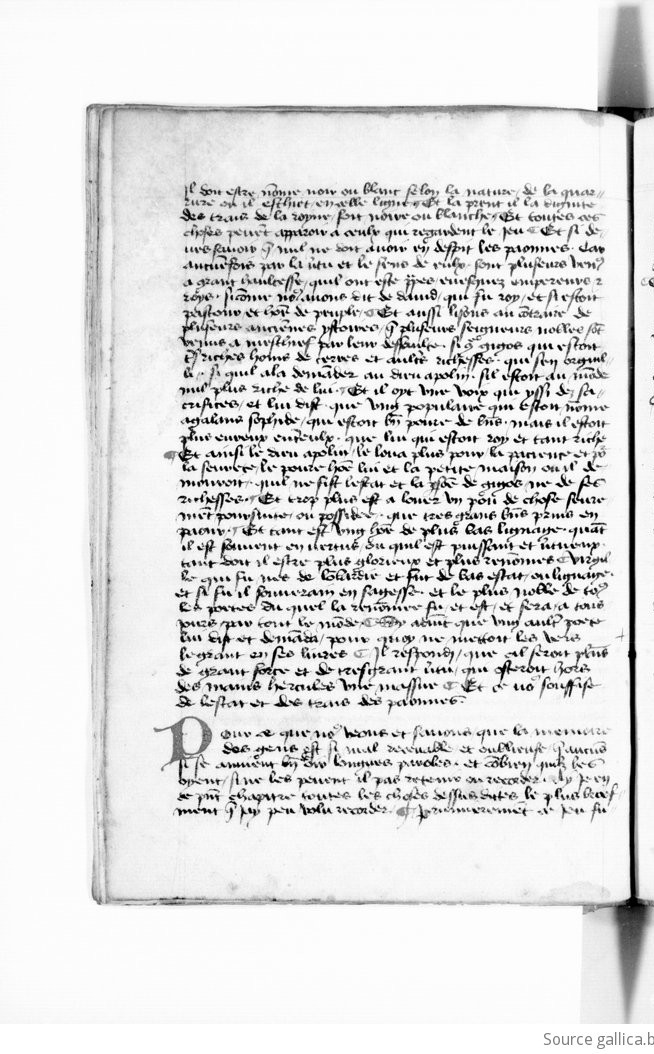 Il doit estre nōme noir ou blanc selon la nature de la quar-
rure ou il est huec en celle ligne Et la prent il la dignite
des trais de la royne soit noire ou blanche Et toutes ces
choses peuēt apparoir a ceulx qui regardent le jeu Et si de-
ues sauoir q̄ nul ne doit auoir en despit les paonnes Car
aucunesfois par la v̄tu et le sens de eulx sont plusieurs venꝰ
a grant haultesse quil ont este euesquez empereurs
roys si cōme noꝰ auons dit de dauid qui fu roy et si estoit
pastour et hōe de peuple Et aussi lisons au cōtraire de
plusieurs anciēnes ystoires q̄ plusieurs seigneurs nobles sōt
venus a meschief par leur deffaulte si cōe giges qui estoit
riches homs de terres et aultres richesses qui sen orguil
li si quil ala demāder au dieu apolin sil estoit au mōde
nul plus riche de lui Et il oyt vne voix qui yssi de sa-
crifices et lui dist que vng populaire qui estoit nōme
agalaus sophide qui estoit bn̄ poure de bn̄s mais il estoit
plus eureux que lui qui estoit roy et tant riche
Et ainsi le dieu apolin le loua plus pour la pacience et pō
la seurete le poure hōe lui et la petite maison ou il de-
mouroit quil ne fist lestat et la psōe de giges ne de ses
richesses Et trop plus est a louer vn pou de chose seure
ment poursuite ou possidee que tres grans bn̄s prins en
paour Et tant est vng hōe de plus bas lignage quāt
il est souuent en vertus ou quil est puissant et v̄tueux
tant doit il estre plus glorieux et plus renomes Virgil
le qui fu nes de lōbardie et fut de bas estat ou lignage
et si fu il souuerain en sagesse et le plus noble de toꝰ
les poetes du quel la renōmee fu et est et sera a tous
jours par tout le mōde Et aduīt que vng aultr poete
lui dist et demāda pour quoy ne mettoit les vers
le grant en ses liures Il respondy que cil seroit plains
de grant force et de tresgrant v̄tu qui osteroit hors
des mains hercules vne massue Et ce noꝰ souffise
de lestat et des trais des paonnes
Pour ce que noꝰ veons et sauons que la memoire
des gens est si mal receuable et oublieuse q̄ aucūs
si se anuoiēt bn̄ doir longues paroles et cōbien quilz les
oyent si ne les peuent il pas retenir ou recorder Ay je en
ce pn̄t chapitre toutes les choses dessus dites le plus brief
ment q̄ jay peu volu recorder Premierement ce jeu fu
Source gallica.b